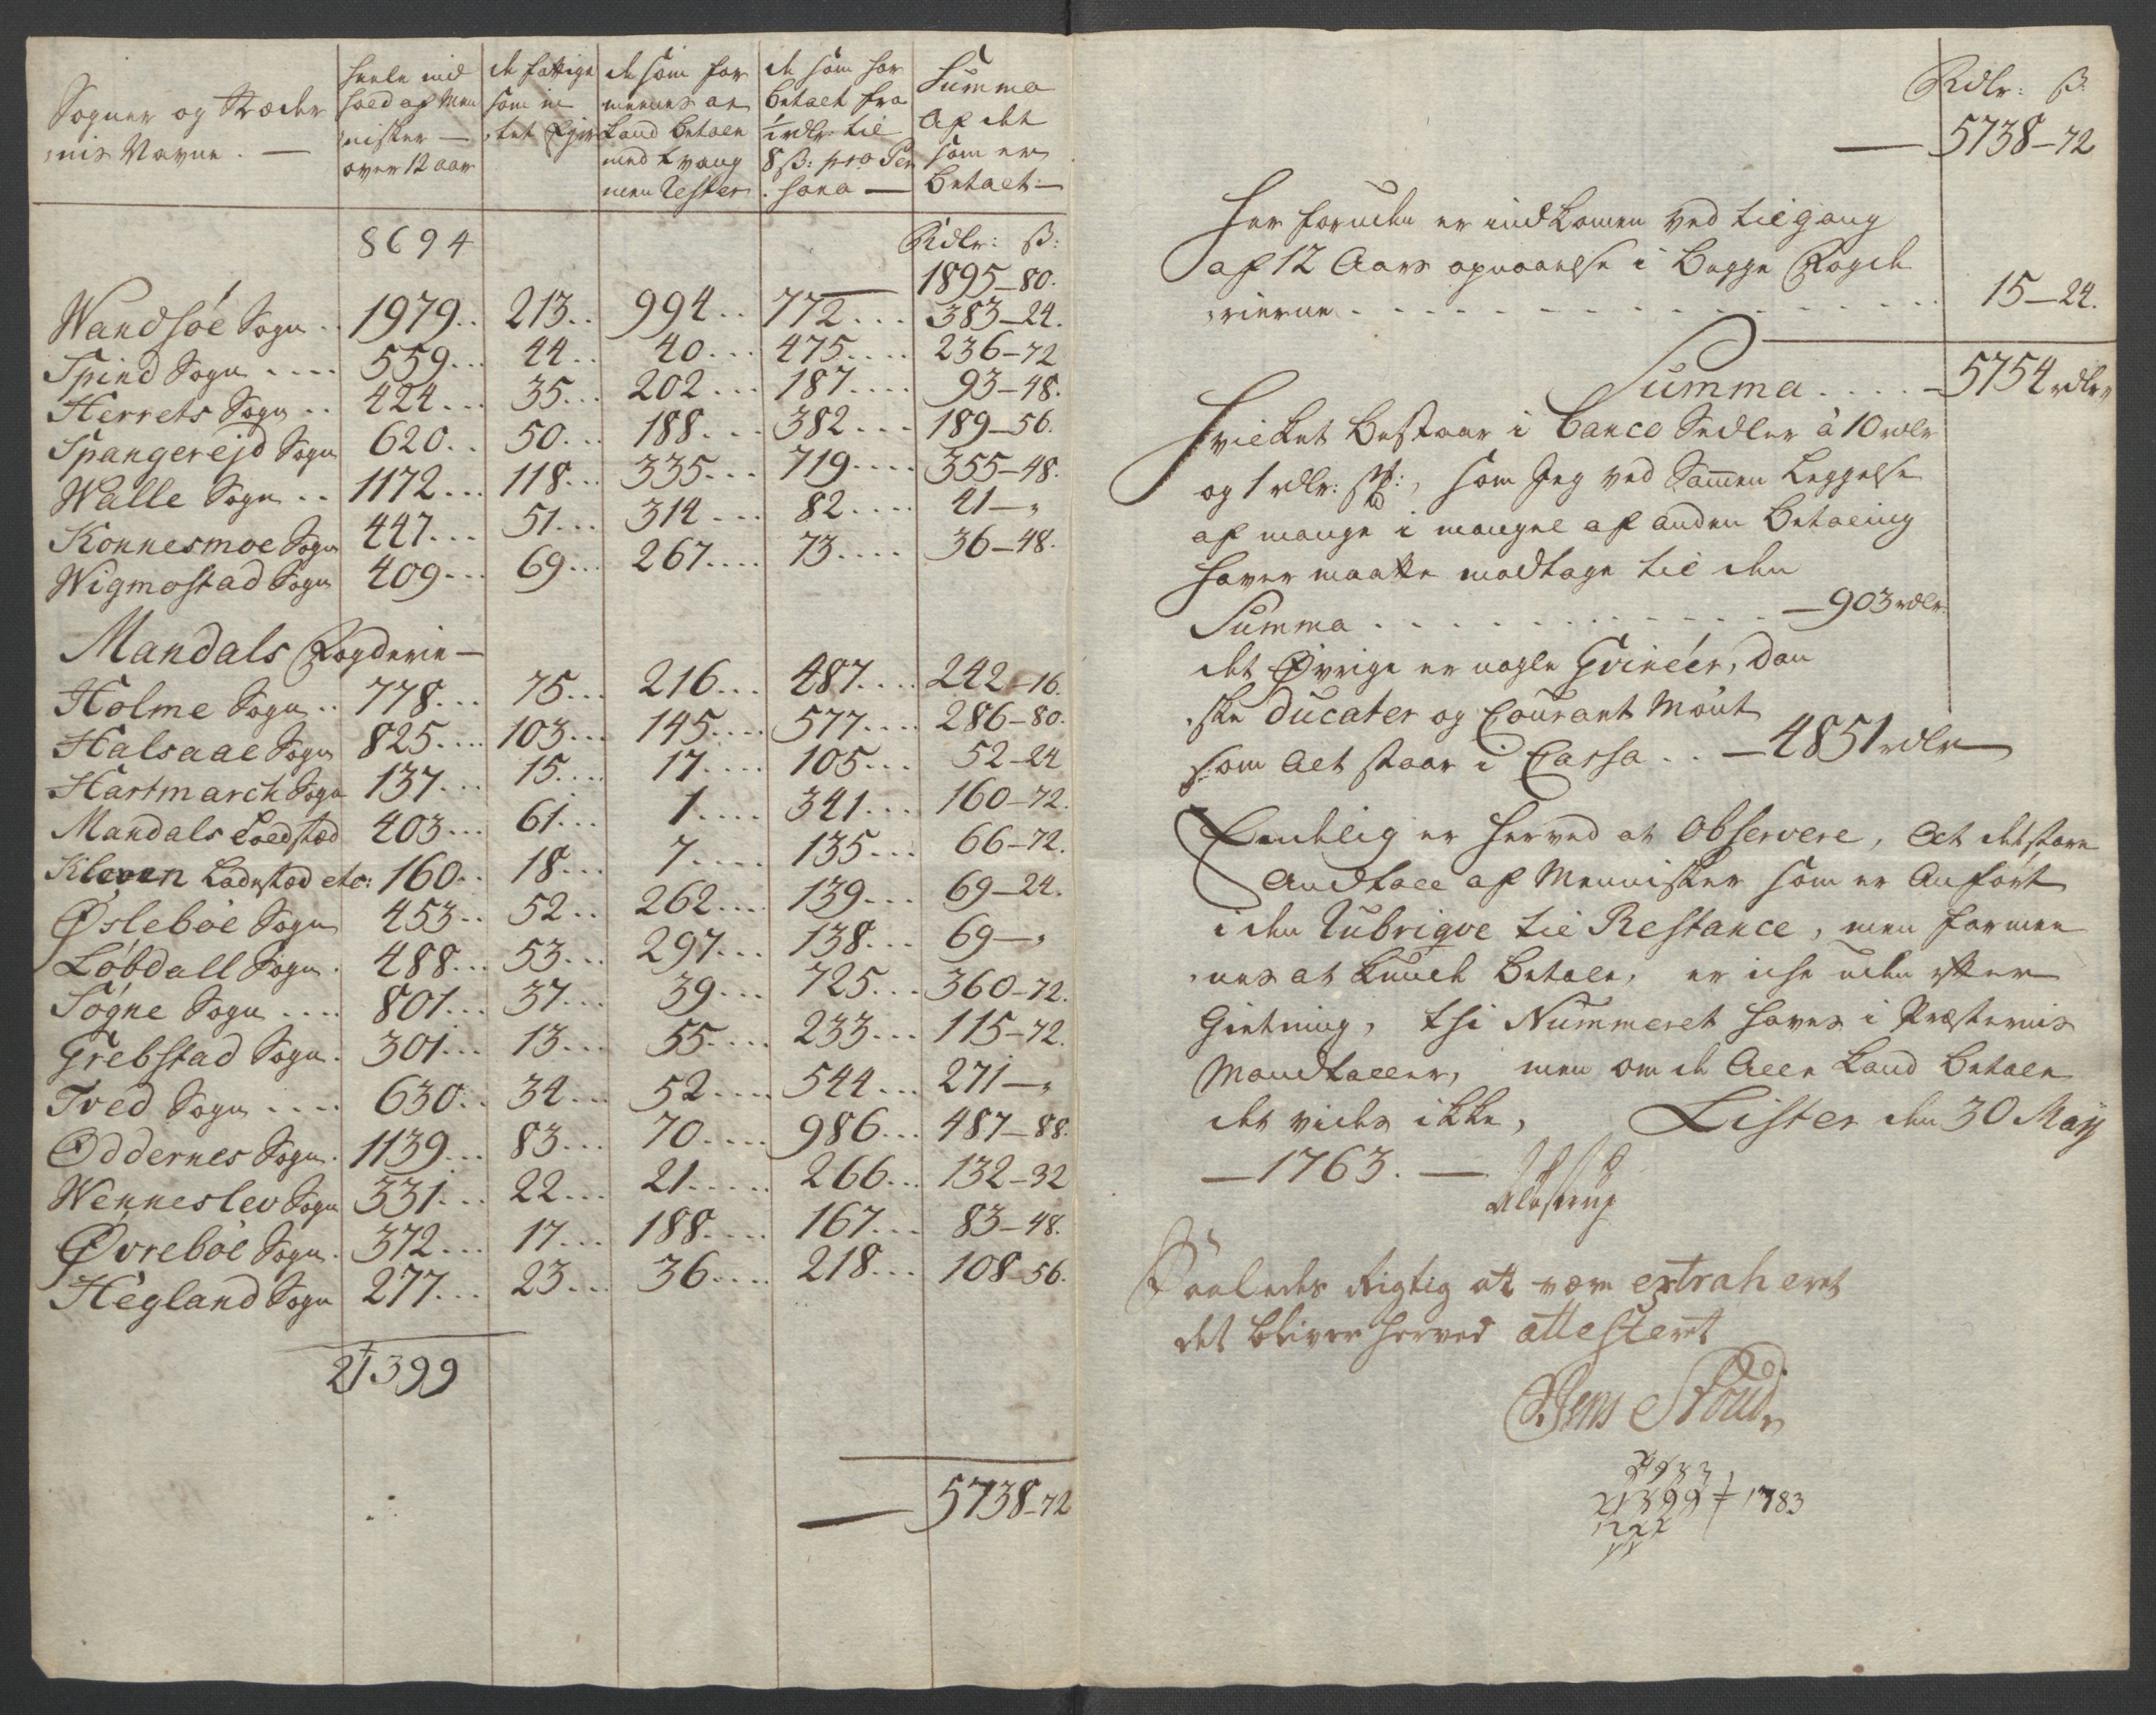 Sogner og Stæder
nis Navne. —
heele ind
hold af Men
nisker —
over 12 aar
de fattige
som in
tet Ejer
de som for
meenes at
kand betale
med tvang
men Rester
de som har
betalt fra
1 rdlr: til
8 ß: pro Per
sona —
Summa
af det
som er
betalt —
8694
Rdlr: ß:
— 1895–80.
Wandsøe Sogn .. 1979.. 213.. 994.. 772... 383–24.
Spind Sogn .... 559... 44.. 40... 475.... 236–72
Herrets Sogn .. 424... 35... 202... 187.... 93–48.
Spangerejd Sogn 620.. 50... 188... 382... 189–56.
Walle Sogn .. 1172... 118... 335... 719.... 355–48.
Konnesmoe Sogn 447... 51... 314... 82.... 41–„
Wigmostad Sogn 409... 69... 267.... 73.... 36–48.
Mandals Fogderie —
Holme Sogn .. 778... 75... 216... 487.... 242–16.
Halsaae Sogn 825.... 103... 145.... 577.... 286–80.
Hartmarch Sogn 137... 15.... 17.... 105... 52–24
Mandals Loedstæd 403... 61... 1.... 341... 160–72.
Kleven Ladestæd etc: 160.. 18... 7.... 135... 66–72.
Øslebøe Sogn 453.. 52.. 262.... 139... 69–24.
Løbdall Sogn. 488... 53... 297... 138... 69–„
Søgne Sogn .... 801... 37... 39... 725... 360–72.
Grebstad Sogn. 301... 13... 55.... 233... 115–72.
Tved Sogn .... 630.. 34... 52.... 544... 271–„
Oddernes Sogn. 1139... 83... 70..... 986... 487–88.
Wenneslev Sogn 331... 22... 21..... 266... 132–32
Øvrebøe Sogn. 372... 17... 188.... 167... 83–48.
Hegland Sogn 277... 23... 36.... 218... 108–56.
21399
— 5738–72
Rdlr: ß:
— 5738–72
Her foruden er indkomen ved tilgang
af 12 Aars opnaaelse i begge Fogde
rierne . . . . . . . . . . . 15–24.
Summa .... –5754 rdlr„
Hvilket bestaar i Banco Sedler à 10 rdlr
og 1 rdlr: st:, som Jeg ved Sammen Leggelse
af mange i mangel af anden betaling
haver maatte modtage til den
Summa . . . . . . . . . . —903 rdlr:
det Øvrige er nogle Gvineer, Dan
ske Ducater og Courant Mønt
som alt staar i Cassa .. —4851 rdlr—
Endelig er herved at Observere, at det store
Andtall af Mennisker som er Anført
i den Rubriqve til Restance, men formee
nes at kunde betale, er icke uden efter
Gietning, thi Nummeret haves i Præsternis
Mandtaller, men om de alle kand betale
det vides ikke, Lister den 30 May
—1763. —
Saaledes Rigtig at være extraheret
det bliver herved attesteret
Jens Stoud
21399 1783